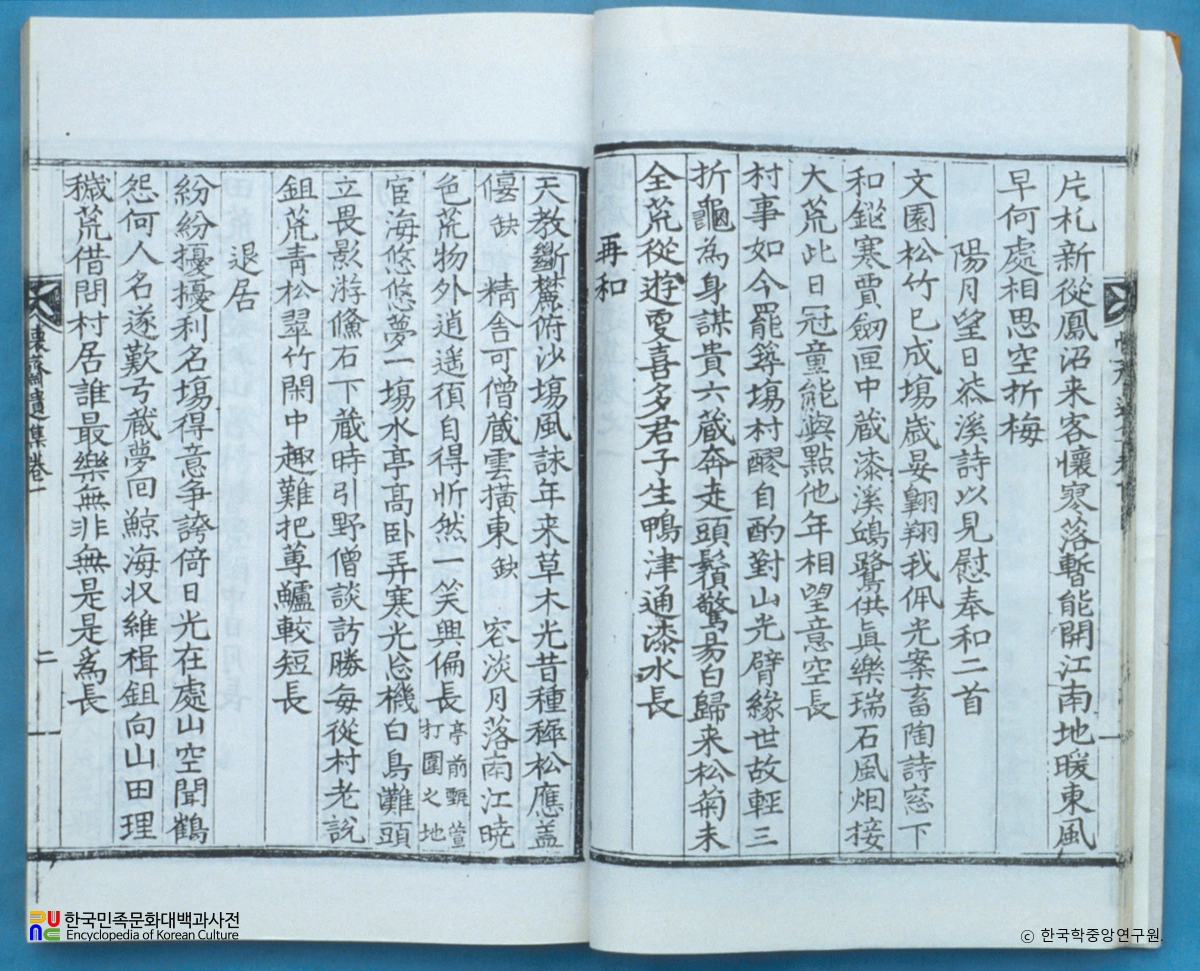 片札新從鳳沼来客懷寥落暫能開江南地暖東風
早何處相思空折梅
陽月望日沗溪詩以見慰奉和二首
文園松竹已成塲歳晏翺翔我佩光案畜陶詩窓下
和鎚寒賈劒匣中蔵漆溪鷗鷺供眞樂瑞石風烟接
大荒此日冠童能與點他年相望意空長
村事如今罷築塲村醪自酌對山光臂緣世故輕三
折龜為身謀貴六蔵奔走頭鬚驚易白歸来松菊未
全荒從遊更喜多君子生鴨津通漆水長
再和
天教斷麓俯沙塲風詠年来草木光昔種稺松應盖
偃缺 精舍可僧蔵雲橫東缺 容淡月落南江暁
色荒物外逍遥須自得忻然一笑興偏長亭前甄萱
打圍之地
宦海悠悠夢一塲水亭高卧弄寒光忘機白鳥灘頭
立畏影游鯈石下蔵時引野僧談訪勝每從村老説
鉏荒青松翠竹閑中趣難把蓴鱸較短長
退居
紛紛擾擾利名塲得意争誇倚日光在處山空聞鶴
怨何人名遂歎弓蔵夢回鯨海収維楫鉏向山田理
穢荒借問村居誰最樂無非無是是爲長
懷齋遺集卷一
二
한국민족문화대백과사전
Encyclopedia of Korean Culture
© 한국학중앙연구원.